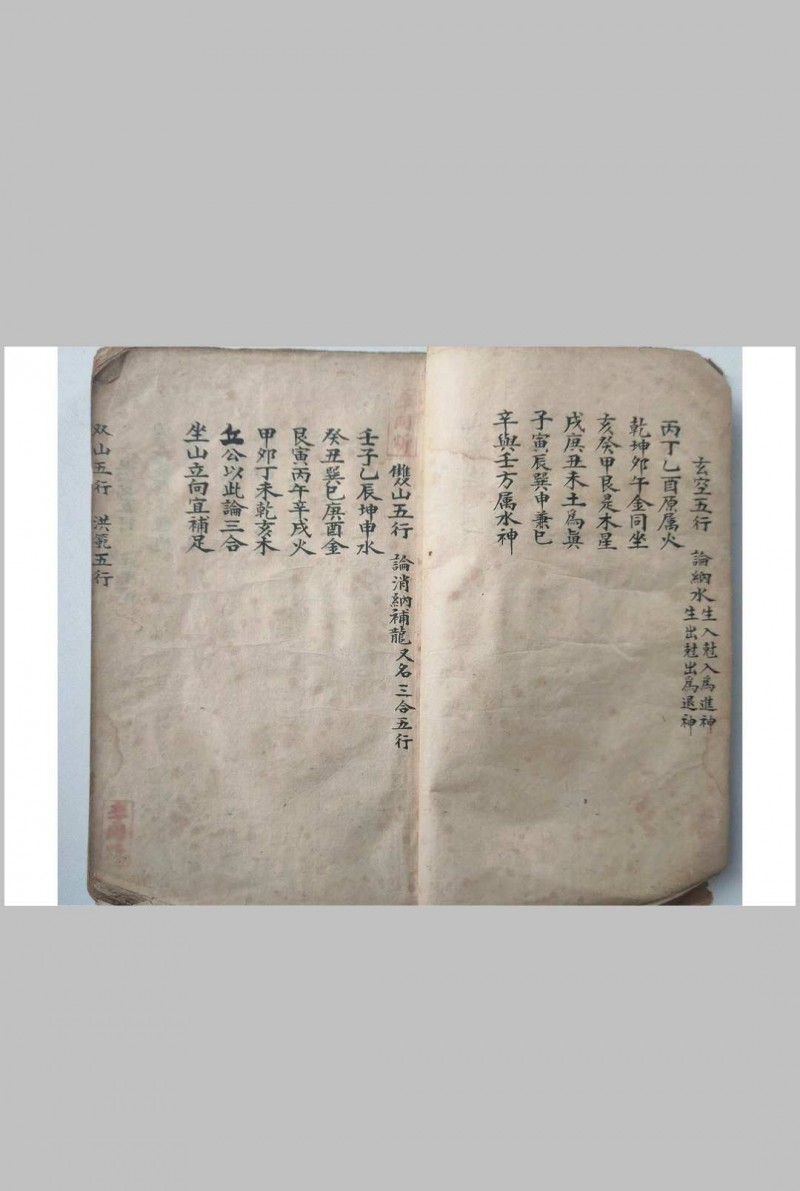 玄空五行 論納水 生入尅入為進神
生出尅出為退神
丙丁乙酉原属火
乾坤卯午金同坐
亥癸甲艮是木星
戌庚丑未土為眞
子寅辰巽申兼巳
辛與壬方属水神
雙山五行 論消納補龍又名三合五行
壬子乙辰坤申水
癸丑巽巳庚酉金
艮寅丙午辛戌火
甲卯丁未乾亥木
丘公以此論三合
坐山立向宜補足
双山五行 洪範五行